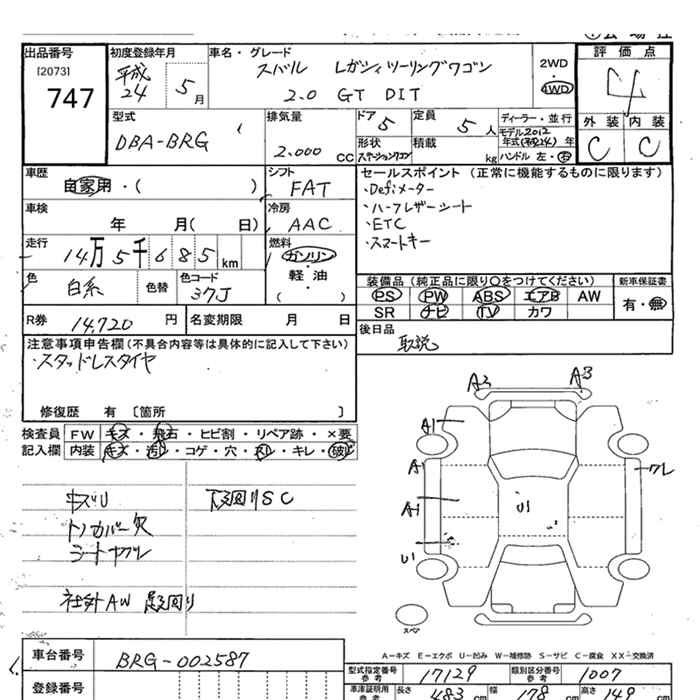 出品番号
[2073]
747
初度登録年月
平成
24 5月
車名・グレード
スバル レガシィツーリングワゴン
2.0 GT DIT
2WD
4WD
評価点
4
外装 内装
C C
型式
DBA-BRG
排気量
2.000 CC
ドア
5
定員
5人
形状
ステーションワゴン
積載
kg
ディーラー・並行
モデル2012
年式(平成24)年
ハンドル 左・右
車歴
自家用・( )
シフト
FAT
車検
年 月( 日)
冷房
AAC
走行
14万5千685km
燃料
ガソリン
軽・油
( ・ )
色
白系
色替
色コード
37J
セールスポイント (正常に機能するものに限ります)
・Defiメーター
・ハーフレザーシート
・ETC
・スマートキー
装備品(純正品に限り○をつけてください)
PS PW ABS エアB AW
SR ナビ TV カワ
新車保証書
有・無
R券 14,720円
名変期限 月 日
後日品
取説
注意事項申告欄(不具合内容等は具体的に記入して下さい)
・スタッドレスタイヤ
修復歴 有 〔箇所 〕
検査員
記入欄
FW キズ・飛石・ヒビ割・リペア跡・×要
内装 キズ・汚レ・コゲ・穴・スレ・キレ・破レ
キズU
下廻りSC
トノカバー欠
社外AW
A2 A3
A1
A1
A1
U1
U1
スペア
A-キズ E-エクボ U-凹み W-補修跡 S-サビ C-腐食 XX-交換済
車台番号
BRG-002587
登録番号
型式指定番号
参考
17129
類別区分番号
参考
1007
車庫証明用
参考
長さ 483 cm
幅 178 cm
高さ 149 cm